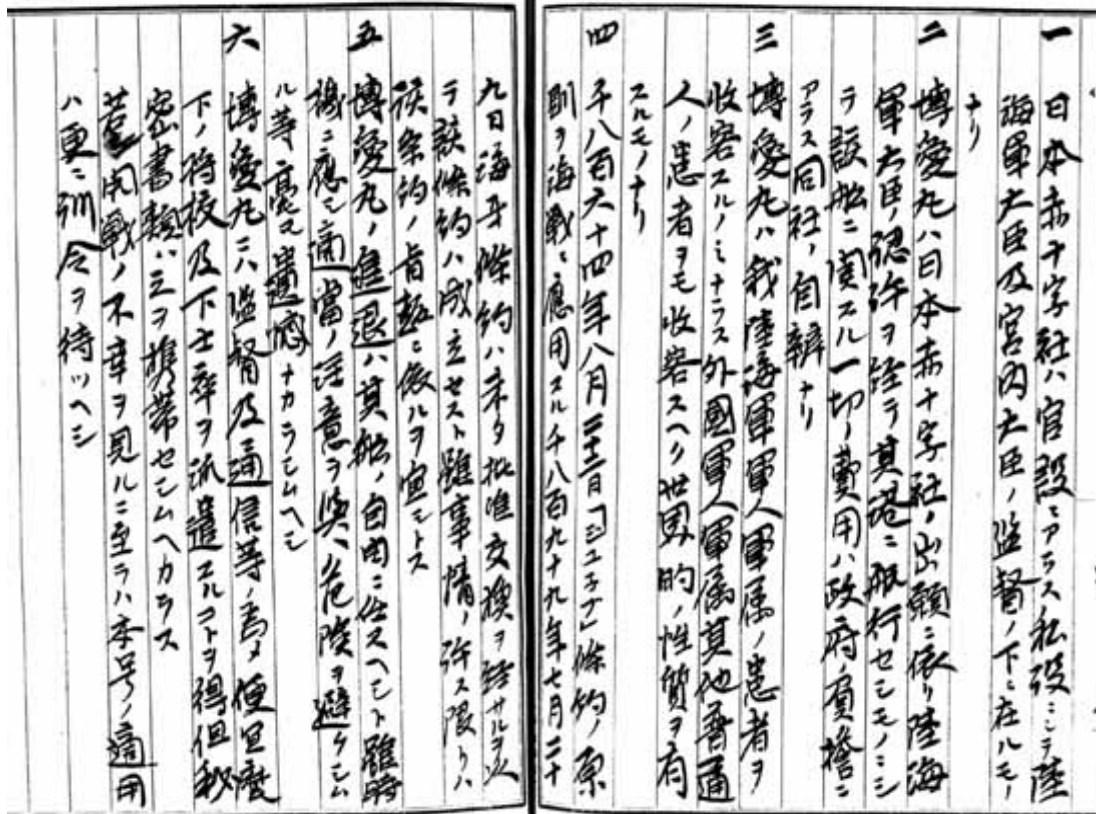 一 日本赤十字社ハ官設ニアラス私設ニシテ陸
海軍大臣及宮内大臣ノ監督ノ下ニ在ルモノ
ナリ
二 博愛丸ハ日本赤十字社ノ出願ニ依リ陸海
軍大臣ノ認許ヲ経テ其港ニ航行セシモノニシ
テ該船ニ関スル一切ノ費用ハ政府ノ負擔ニ
アラス同社ノ自辨ナリ
三 博愛丸ハ我陸海軍軍人軍属ノ患者ヲ
收容スルノミナラス外國軍人軍属其他普通
人ノ患者ヲモ收容スヘク世界的ノ性質ヲ有
スルモノナリ
四 千八百六十四年八月二十二日「ジユネブ」條約ノ原
則ヲ海戰ニ應用スル千八百九十九年七月二十
九日海牙條約ハ未タ批准交換ヲ経サルヲ以
テ該條約ハ成立セスト雖事情ノ許ス限リハ
該条約ノ旨趣ニ倣ルヲ宜シトス
五 博愛丸ノ進退ハ其船ノ自由ニ任スヘシト雖時
機ニ應シ適當ノ注意ヲ與ヘ危険ヲ避ケシム
ル等毫モ遺憾ナカラシムヘシ
六 博愛丸ニハ監督及通信等ノ為メ便宜麾
下ノ将校及下士卒ヲ派遣スルヿヲ得但秘
密書類ハ之ヲ携帯セシムヘカラス
若シ開戰ノ不幸ヲ見ルニ至ラハ本号ノ適用
ハ更ニ訓令ヲ待ツヘシ